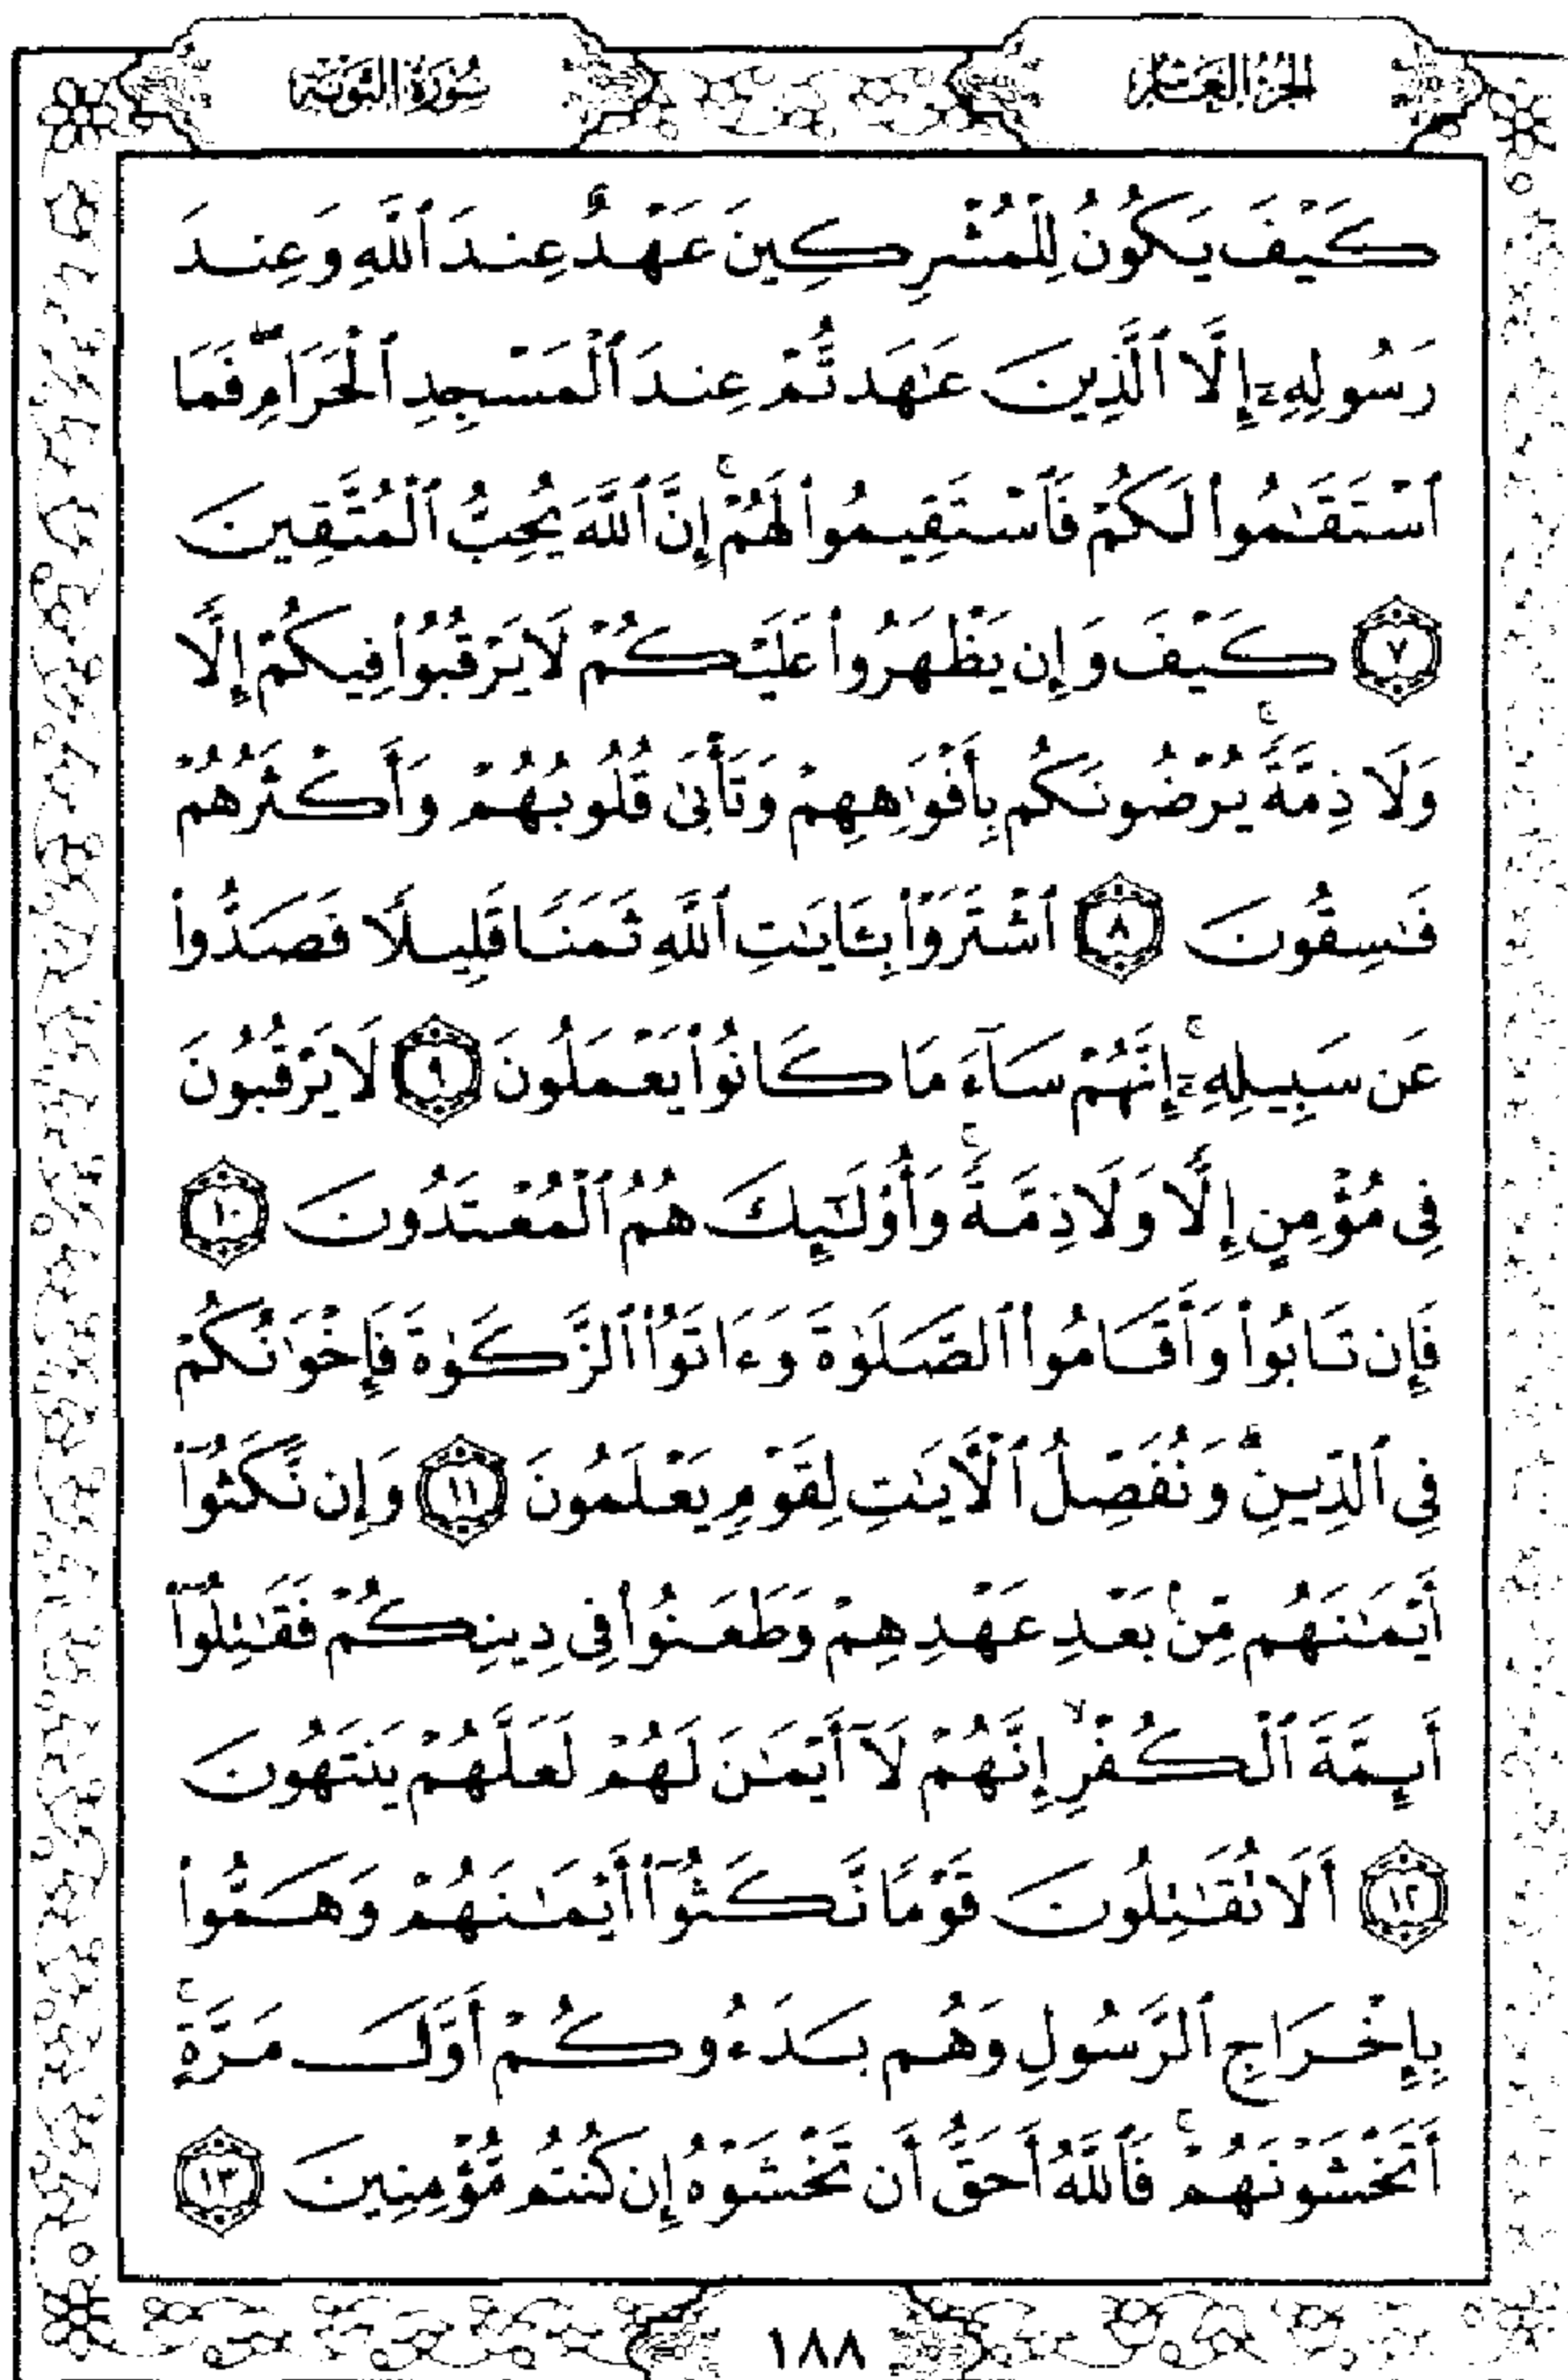 الجزء العاشر
سورة التوبة
كَيْفَ يَكُونُ لِلْمُشْرِكِينَ عَهْدٌ عِندَ ٱللَّهِ وَعِندَ
رَسُولِهِۦٓ إِلَّا ٱلَّذِينَ عَٰهَدتُّمْ عِندَ ٱلْمَسْجِدِ ٱلْحَرَامِ ۖ فَمَا
ٱسْتَقَٰمُوا۟ لَكُمْ فَٱسْتَقِيمُوا۟ لَهُمْ ۚ إِنَّ ٱللَّهَ يُحِبُّ ٱلْمُتَّقِينَ
٧ كَيْفَ وَإِن يَظْهَرُوا۟ عَلَيْكُمْ لَا يَرْقُبُوا۟ فِيكُمْ إِلًّا
وَلَا ذِمَّةً ۚ يُرْضُونَكُم بِأَفْوَٰهِهِمْ وَتَأْبَىٰ قُلُوبُهُمْ وَأَكْثَرُهُمْ
فَٰسِقُونَ ٨ ٱشْتَرَوْا۟ بِـَٔايَٰتِ ٱللَّهِ ثَمَنًا قَلِيلًا فَصَدُّوا۟
عَن سَبِيلِهِۦٓ ۚ إِنَّهُمْ سَآءَ مَا كَانُوا۟ يَعْمَلُونَ ٩ لَا يَرْقُبُونَ
فِى مُؤْمِنٍ إِلًّا وَلَا ذِمَّةً ۚ وَأُو۟لَٰٓئِكَ هُمُ ٱلْمُعْتَدُونَ ١٠
فَإِن تَابُوا۟ وَأَقَامُوا۟ ٱلصَّلَوٰةَ وَءَاتَوُا۟ ٱلزَّكَوٰةَ فَإِخْوَٰنُكُمْ
فِى ٱلدِّينِ ۗ وَنُفَصِّلُ ٱلْـَٔايَٰتِ لِقَوْمٍ يَعْلَمُونَ ١١ وَإِن نَّكَثُوٓا۟
أَيْمَٰنَهُم مِّنۢ بَعْدِ عَهْدِهِمْ وَطَعَنُوا۟ فِى دِينِكُمْ فَقَٰتِلُوٓا۟
أَئِمَّةَ ٱلْكُفْرِ ۙ إِنَّهُمْ لَآ أَيْمَٰنَ لَهُمْ لَعَلَّهُمْ يَنتَهُونَ
١٢ أَلَا تُقَٰتِلُونَ قَوْمًا نَّكَثُوٓا۟ أَيْمَٰنَهُمْ وَهَمُّوا۟
بِإِخْرَاجِ ٱلرَّسُولِ وَهُم بَدَءُوكُمْ أَوَّلَ مَرَّةٍ ۚ
أَتَخْشَوْنَهُمْ ۚ فَٱللَّهُ أَحَقُّ أَن تَخْشَوْهُ إِن كُنتُم مُّؤْمِنِينَ ١٣
١٨٨